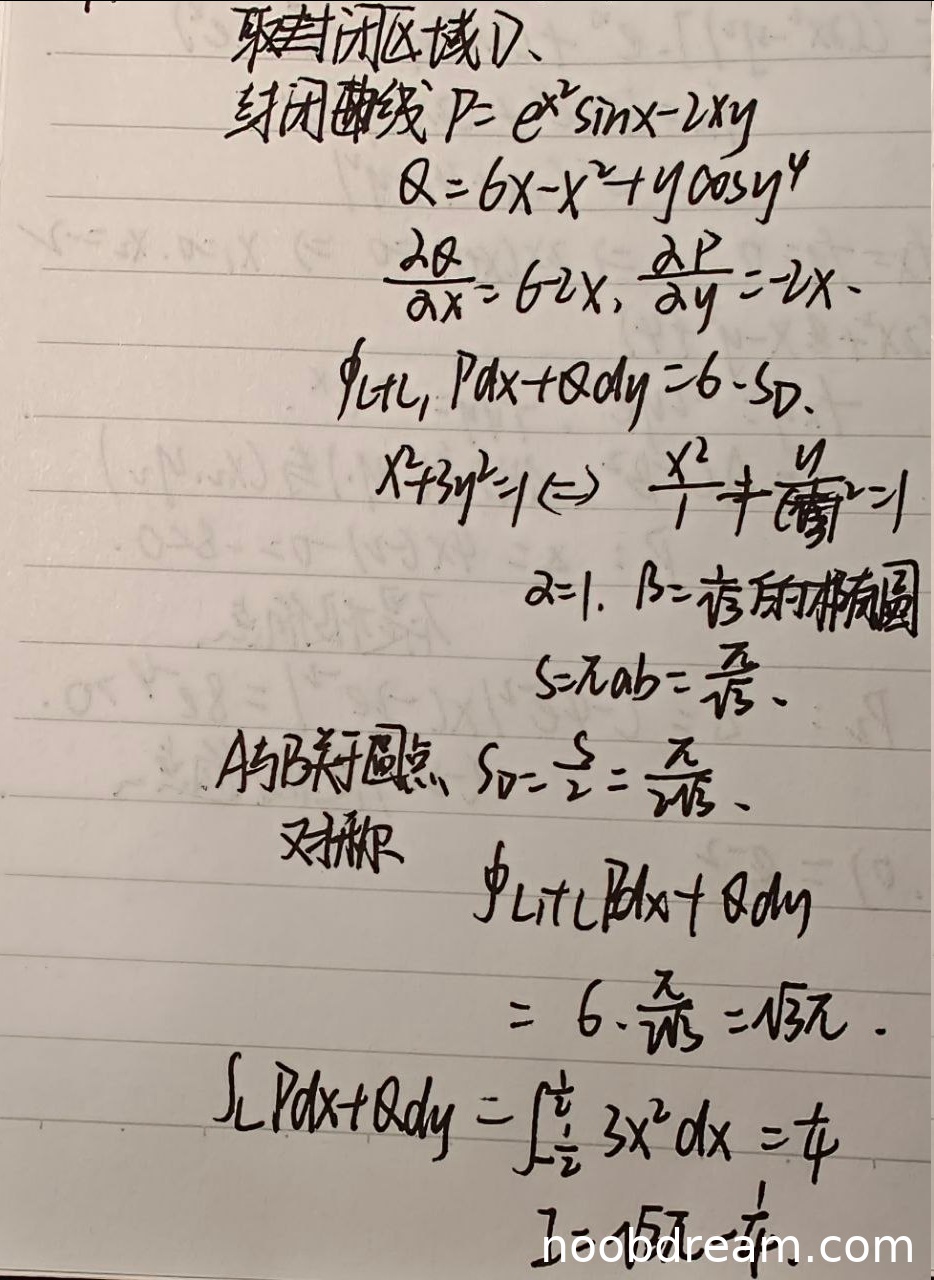 取封闭区域D、
封闭曲线 P = e^{x²}sinx-2xy
Q = 6x-x²+ycosy⁴
∂Q/∂x = 6-2x, ∂P/∂y = -2x.
∮_{L+L₁} Pdx+Qdy = 6·S_D.
x²+3y²=1 ⇔ x²/1 + y/(1/√3)² = 1
a=1. B=1/√3 的椭圆
S=πab = π/√3、
A与B关于圆点 S_D = S/2 = π/2√3、
对称
∮_{L₁+L} Pdx+Qdy
= 6·π/2√3 = √3π.
∫_L Pdx+Qdy = ∫_{-1/2}^{1/2} 3x²dx = 1/4
I = √3π-1/4.
noobdream.com